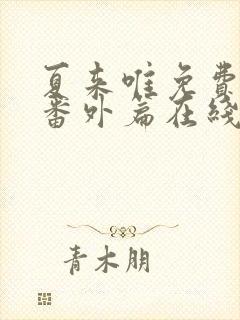 夏来唯免费
番外篇在线
青木朋